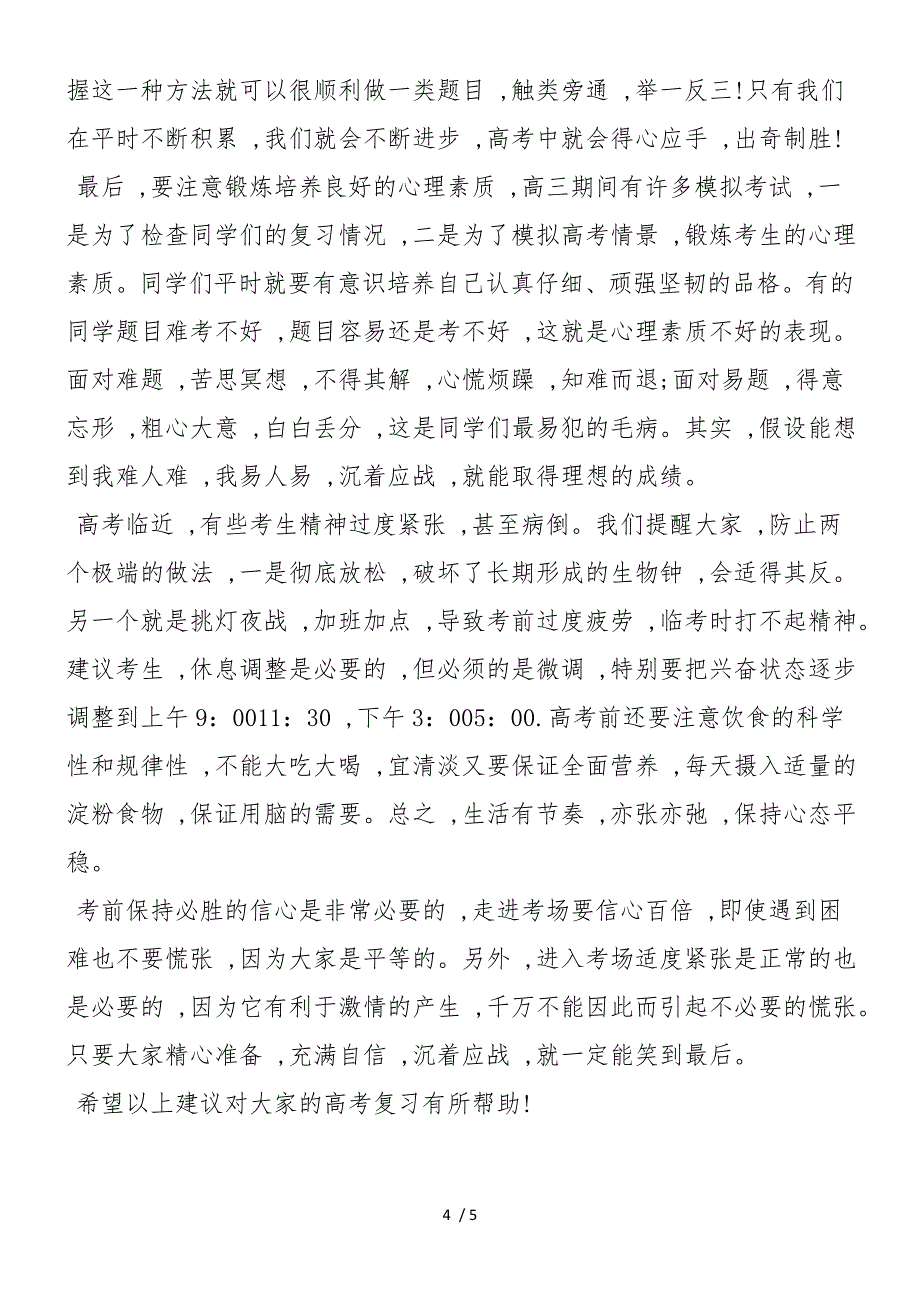 握这一种方法就可以很顺利做一类题目 ,触类旁通 ,举一反三!只有我们
在平时不断积累 ,我们就会不断进步 ,高考中就会得心应手 ,出奇制胜!
最后 ,要注意锻炼培养良好的心理素质 ,高三期间有许多模拟考试 ,一
是为了检查同学们的复习情况 ,二是为了模拟高考情景 ,锻炼考生的心理
素质。同学们平时就要有意识培养自己认真仔细、顽强坚韧的品格。有的
同学题目难考不好 ,题目容易还是考不好 ,这就是心理素质不好的表现。
面对难题 ,苦思冥想 ,不得其解 ,心慌烦躁 ,知难而退;面对易题 ,得意
忘形 ,粗心大意 ,白白丢分 ,这是同学们最易犯的毛病。其实 ,假设能想
到我难人难 ,我易人易 ,沉着应战 ,就能取得理想的成绩。
高考临近 ,有些考生精神过度紧张 ,甚至病倒。我们提醒大家 ,防止两
个极端的做法 ,一是彻底放松 ,破坏了长期形成的生物钟 ,会适得其反。
另一个就是挑灯夜战 ,加班加点 ,导致考前过度疲劳 ,临考时打不起精神。
建议考生 ,休息调整是必要的 ,但必须的是微调 ,特别要把兴奋状态逐步
调整到上午9：0011：30 ,下午3：005：00.高考前还要注意饮食的科学
性和规律性 ,不能大吃大喝 ,宜清淡又要保证全面营养 ,每天摄入适量的
淀粉食物 ,保证用脑的需要。总之 ,生活有节奏 ,亦张亦弛 ,保持心态平
稳。
考前保持必胜的信心是非常必要的 ,走进考场要信心百倍 ,即使遇到困
难也不要慌张 ,因为大家是平等的。另外 ,进入考场适度紧张是正常的也
是必要的 ,因为它有利于激情的产生 ,千万不能因此而引起不必要的慌张。
只要大家精心准备 ,充满自信 ,沉着应战 ,就一定能笑到最后。
希望以上建议对大家的高考复习有所帮助!
4 / 5